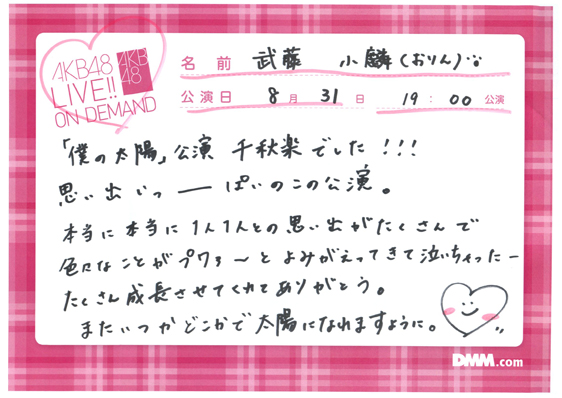 AKB48
LIVE!!
ON DEMAND
AKB
48
名前 武藤 小麟(おりん)
公演日 8月31日 19:00公演
「僕の太陽」公演 千秋楽でした!!!
思い出いっーぱいのこの公演。
本当に本当に1人1人との思い出がたくさんで
色々なことがプワァ〜とよみがえってきて泣いちゃったー
たくさん成長させてくれてありがとう。
またいつかどこかで太陽になれますように。
DMM.com